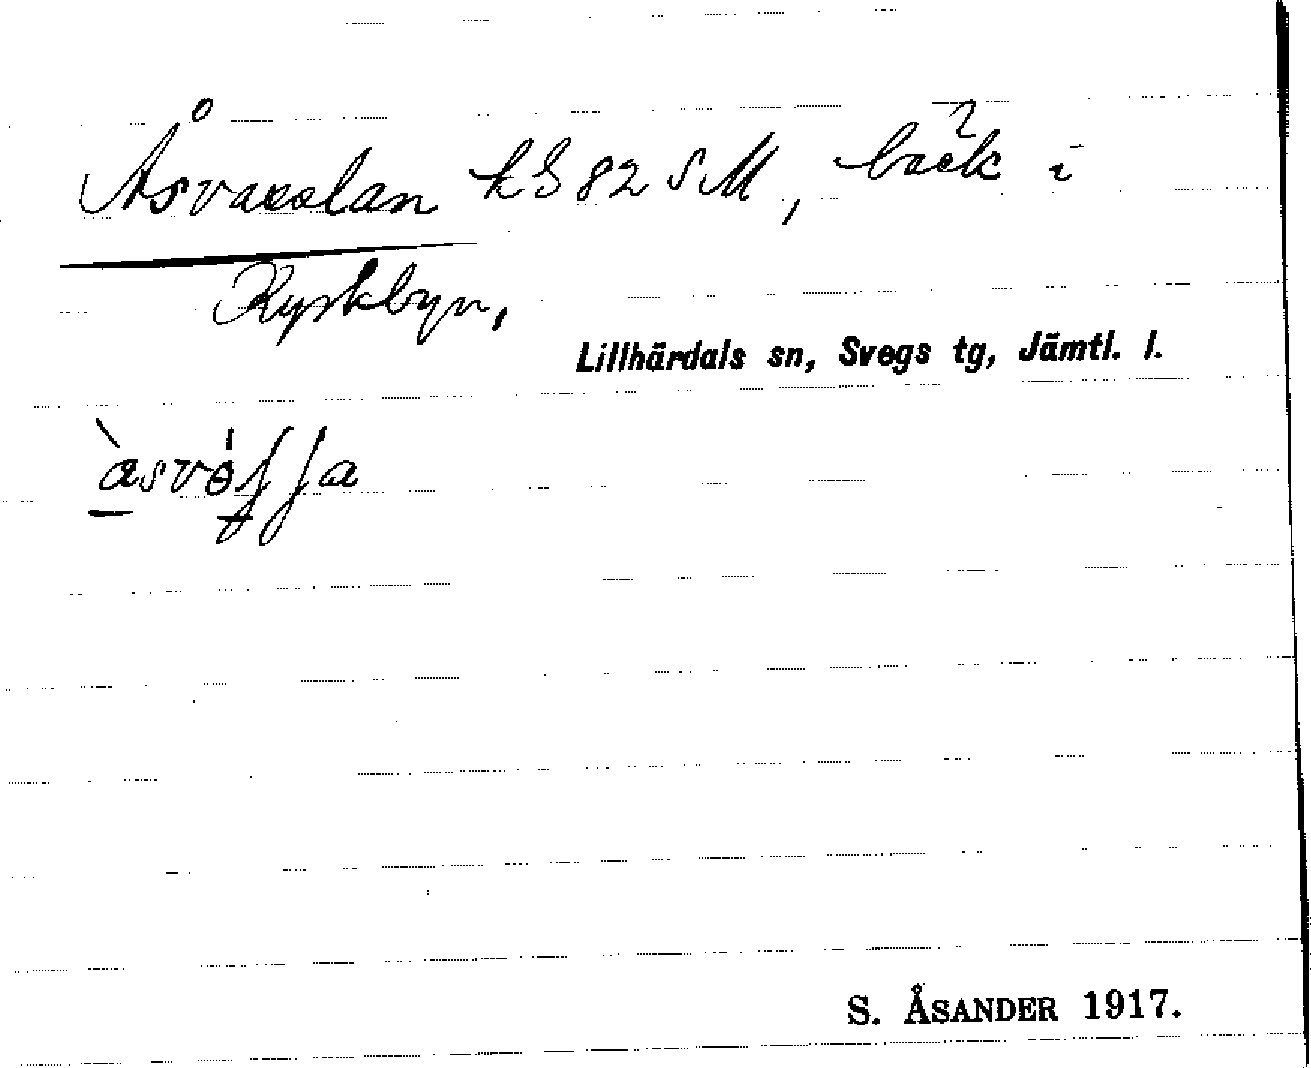 Åsvasslan k982SM, bäck i
Kyrkbyn,
Lillhärdals sn, Svegs tg, Jämtl. l.
S. ÅSANDER 1917.